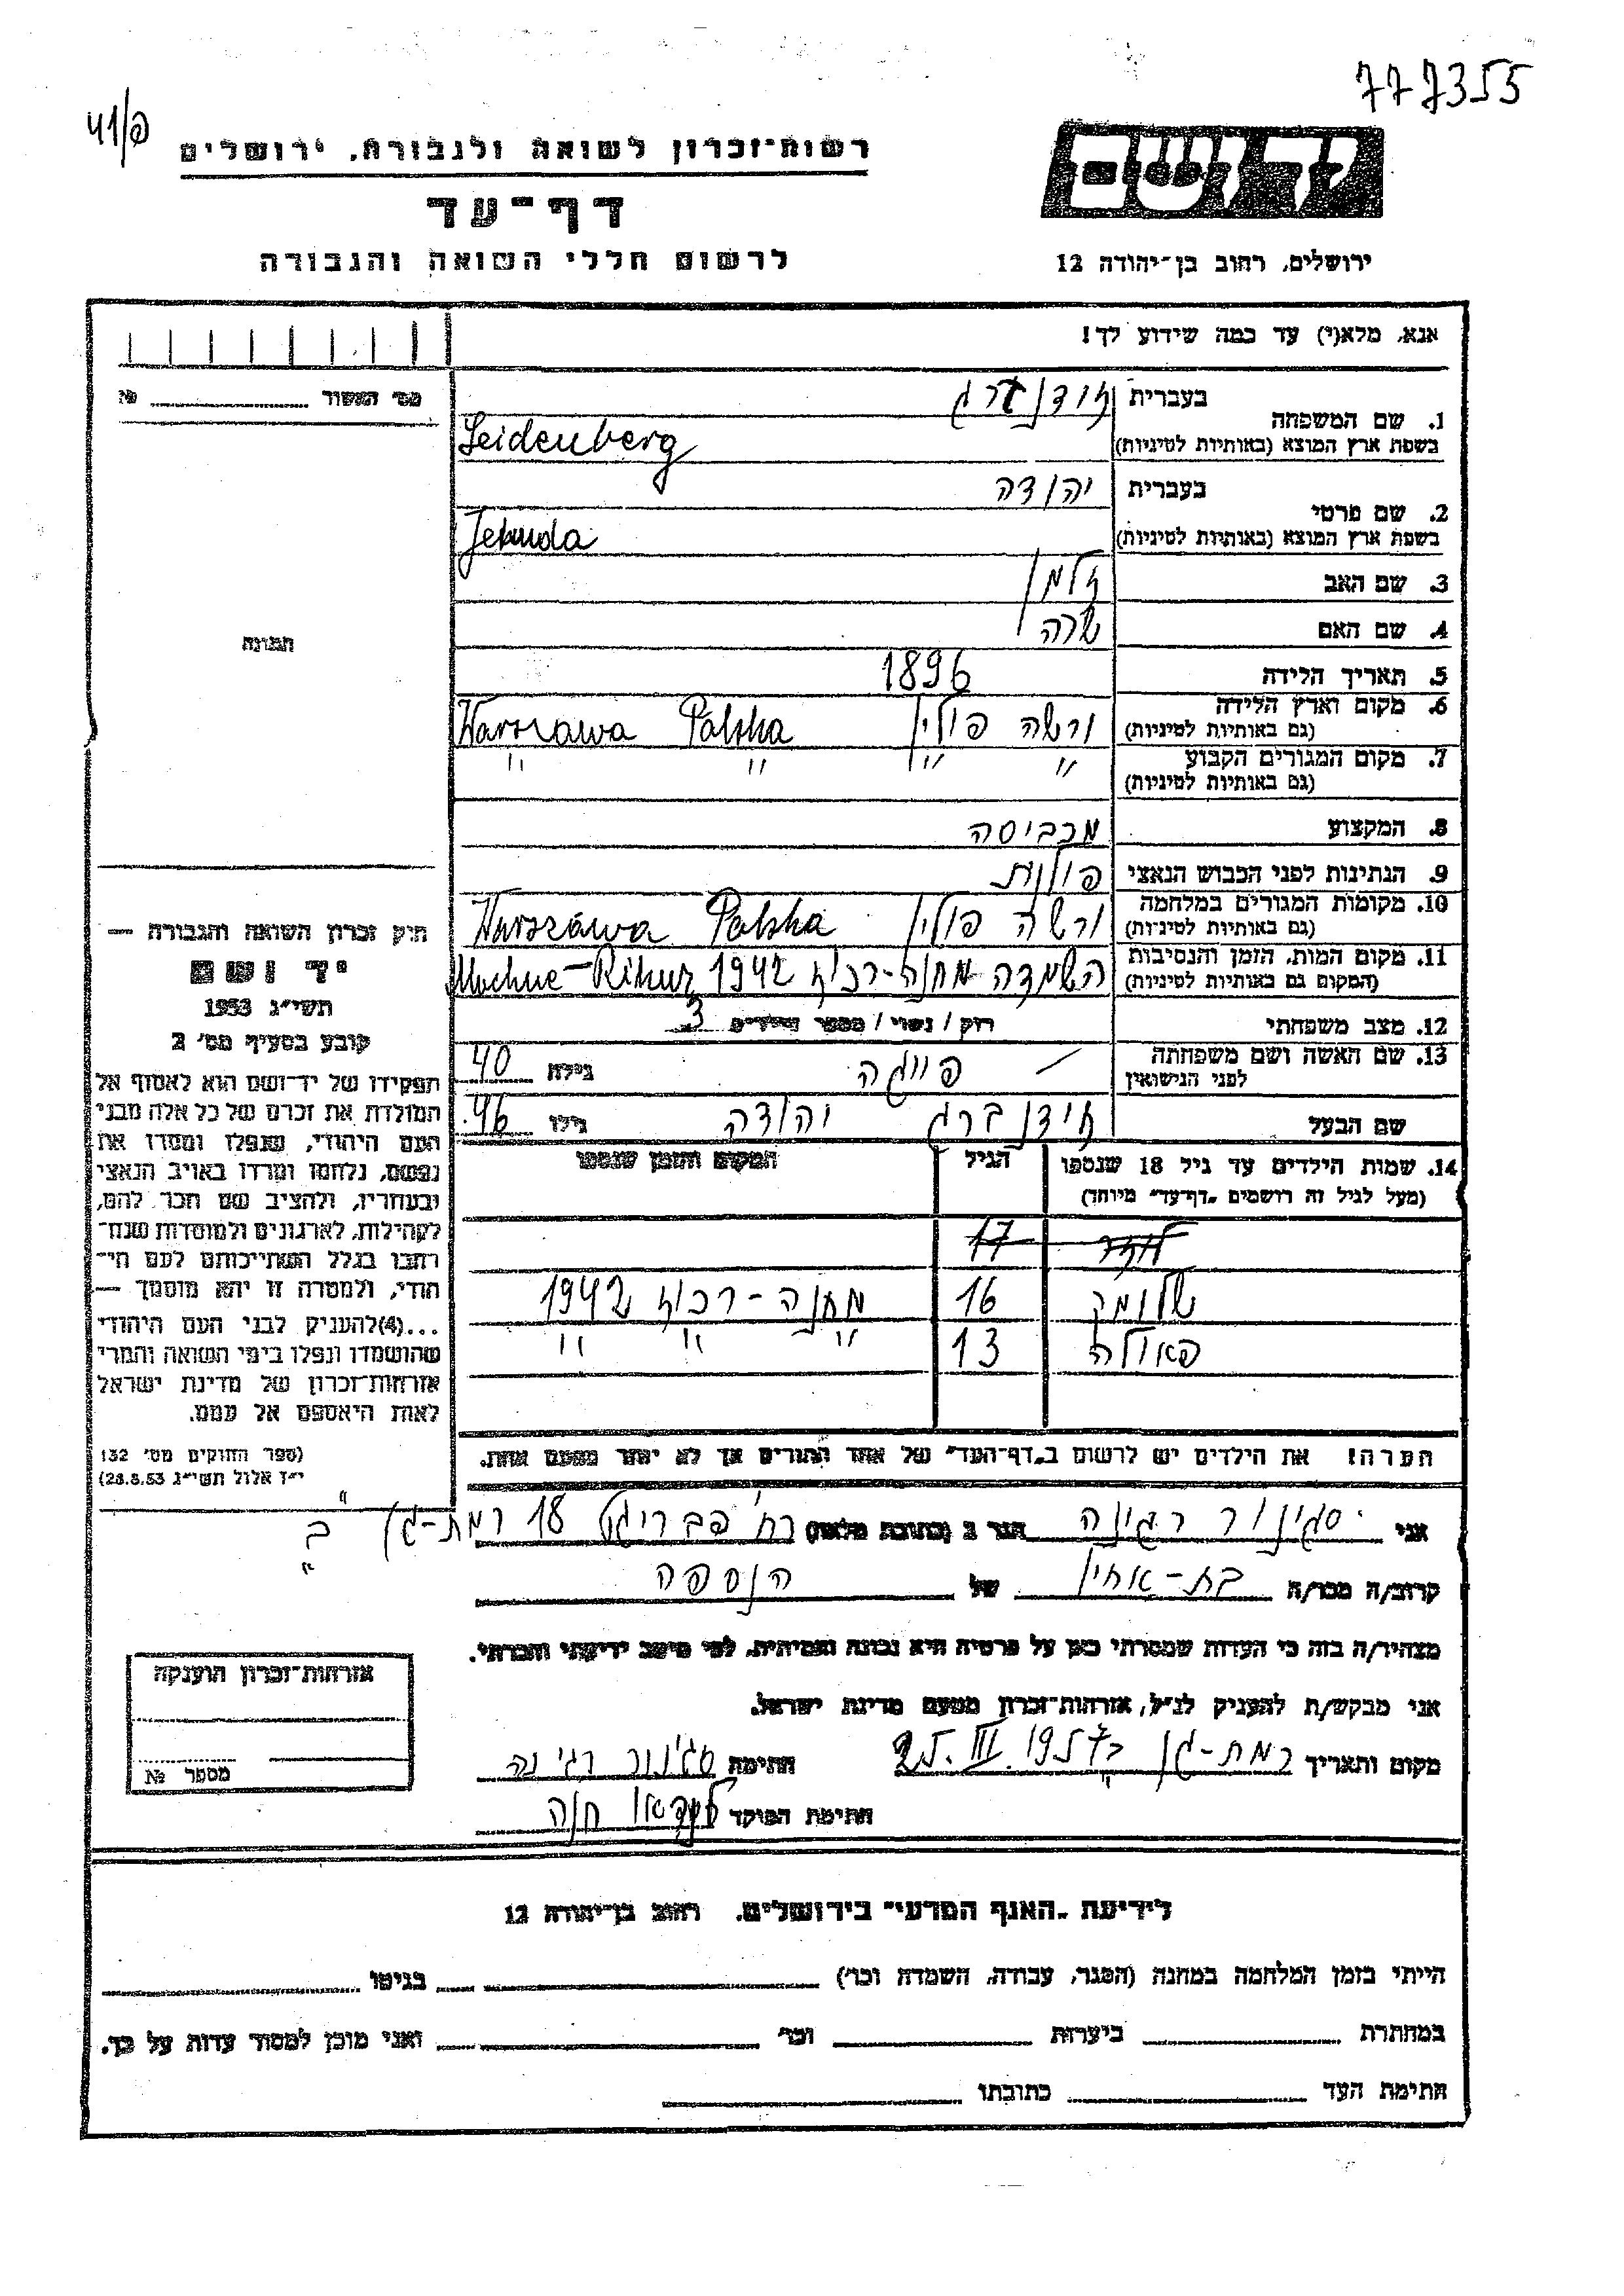 777355
41/פ
רשות-זכרון לשואה ולגבורה, ירושלים
דף-עד
לרשום חללי השואה והגבורה
יד ושם
ירושלים, רחוב בן-יהודה 12
אנא, מלא(י) עד כמה שידוע לך!
מס' האשור №
1. שם המשפחה
בעברית
בשפת ארץ המוצא (באותיות לטיניות) Seidenberg
2. שם פרטי
בעברית יהודה
בשפת ארץ המוצא (באותיות לטיניות) Jehuda
3. שם האב זלמן
4. שם האם שרה
5. תאריך הלידה 1896
6. מקום וארץ הלידה (גם באותיות לטיניות) ורשה פולין Warszawa Polska
7. מקום המגורים הקבוע (גם באותיות לטיניות) " " " "
8. המקצוע מכביסה
9. הנתינות לפני הכבוש הנאצי פולנית
10. מקומות המגורים במלחמה (גם באותיות לטיניות) ורשה פולין Warszawa Polska
11. מקום המות, הזמן והנסיבות (המקום גם באותיות לטיניות) השמדה מחנה- 1942
12. מצב משפחתי רווק / נשוי / מספר הילדים 3
13. שם האשה ושם משפחתה לפני הנישואין — פייגה גילה 40
שם הבעל זידנברג יהודה גילו 46
14. שמות הילדים עד גיל 18 שנספו
(מעל לגיל זה רושמים "דף-עד" מיוחד)
הגיל
המקום והזמן שנספו
17
שלומק 16 מחנה- 1942
פאולה 13 " " "
הערה! את הילדים יש לרשום ב"דף-העד" של אחד ההורים אך לא יותר מפעם אחת.
תמונה
חוק זכרון השואה והגבורה —
יד ושם
תשי"ג 1953
קובע בסעיף מס' 2
תפקידו של יד-ושם הוא לאסוף אל
המולדת את זכרם של כל אלה מבני
העם היהודי, שנפלו ומסרו את
נפשם, נלחמו ומרדו באויב הנאצי
ובעוזריו, ולהציב שם וזכר להם,
לקהילות, לארגונים ולמוסדות שנח-
רבו בגלל השתייכותם לעם הי-
הודי, ולמטרה זו יהא מוסמך —
...(4)להעניק לבני העם היהודי
שהושמדו ונפלו בימי השואה והמרי
אזרחות-זכרון של מדינת ישראל
לאות היאספם אל עמם.
(ספר החוקים מס' 132
י"ז אלול תשי"ג 28.8.53)
אני סגינור רגינה הגר ב (כתובת מלאה) רח' 18 רמת-גן "ב"
קרוב/ה מכר/ה בת-אחין של הנספה
מצהיר/ה בזה כי העדות שמסרתי כאן על פרטיה היא נכונה ואמיתית, לפי מיטב ידיעתי והכרתי.
אני מבקש/ת להעניק לנ"ל, אזרחות-זכרון מטעם מדינת ישראל.
מקום ותאריך רמת-גן 25.III.1957 חתימה סגינור רגינה
חתימת הפוקד חנה
אזרחות-זכרון הוענקה
מספר №
לידיעת "האגף המדעי" בירושלים, רחוב בן-יהודה 12
הייתי בזמן המלחמה במחנה (הסגר, עבודה, השמדה וכו') בגיטו
במחתרת ביערות וכו' ואני מוכן למסור עדות על כך.
חתימת העד כתובתו